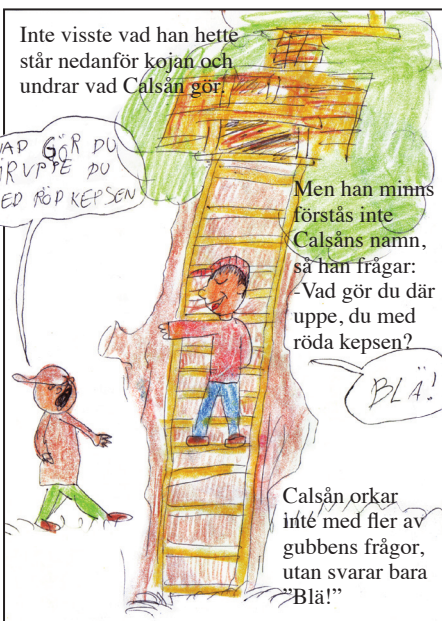 Inte visste vad han hette
står nedanför kojan och
undrar vad Calsån gör.
VAD GÖR DU
DÄRUPPE DU
MED RÖD KEPSEN
Men han minns
förstås inte
Calsåns namn,
så han frågar:
-Vad gör du där
uppe, du med
röda kepsen?
BLÄ!
Calsån orkar
inte med fler av
gubbens frågor,
utan svarar bara
"Blä!"